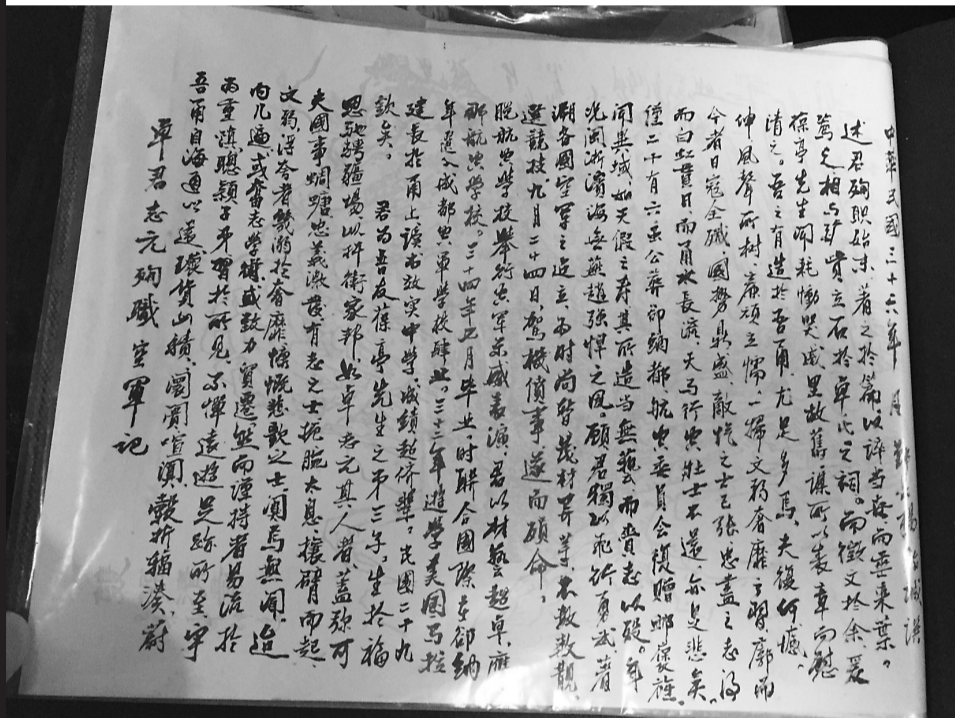 卓君志元殉職空軍記
吾甬自海通以還環貨山積、闤闠喧溷、轂折輻湊、蔚
為重鎮聰穎子弟習於所見、不憚遠遊足跡所至、宇
内几遍、或奮志學術、或致力貿遷然而謹持者易流於
文弱、浮夸者幾溺於奢靡慷慨悲歌之士闃焉無聞、迨
夫國事蜩螗忠義激發有志之士扼腕太息攘臂而起、
思馳騁疆場以捍衛家邦如卓君志元其人者、蓋弥可
欽矣。君為吾友葆亭先生之弟三子、生於福
建長於甬上讀書效实中學成績超儕輩。民國二十九
年選入成都空軍學校肄业。三十三年遊學美國馬拉
那航空學校。三十四年七月毕业、时聯合國際在卻納
脫航空學校舉行空軍示威表演、君以材藝超卓、膺
選競技、九月二十四日駕機僨事遂而殞命。
溯各國空軍之立為时尚暫材異等未数数觀、
况閩浙濱海無燕趙強悍之風顧君獨以飛行勇武著
聞異域如天假之年其所造当無藝而賫志以殁。年
僅二十有六虽公葬印緬都航空委員会復贈卹褒旌、
而白虹貫日而甬水長流天馬行空壮士不還亦足悲矣。
今者日寇全殲國勢鼎盛、敵愾之士已張忠藎之志得
伸風聲所树廉頑立懦一掃文弱奢靡之習廓而
清之、吾之有造於吾甬尤足多焉、夫復何憾、
葆亭先生聞耗慟哭戚里故舊謀所以表章而慰
兄相与貲立石於卓氏之祠。而徵文於余、爰
述君殉职始末、著之於篇以諗当世而垂来葉。
中華民國三十六年 月 鄞 楊